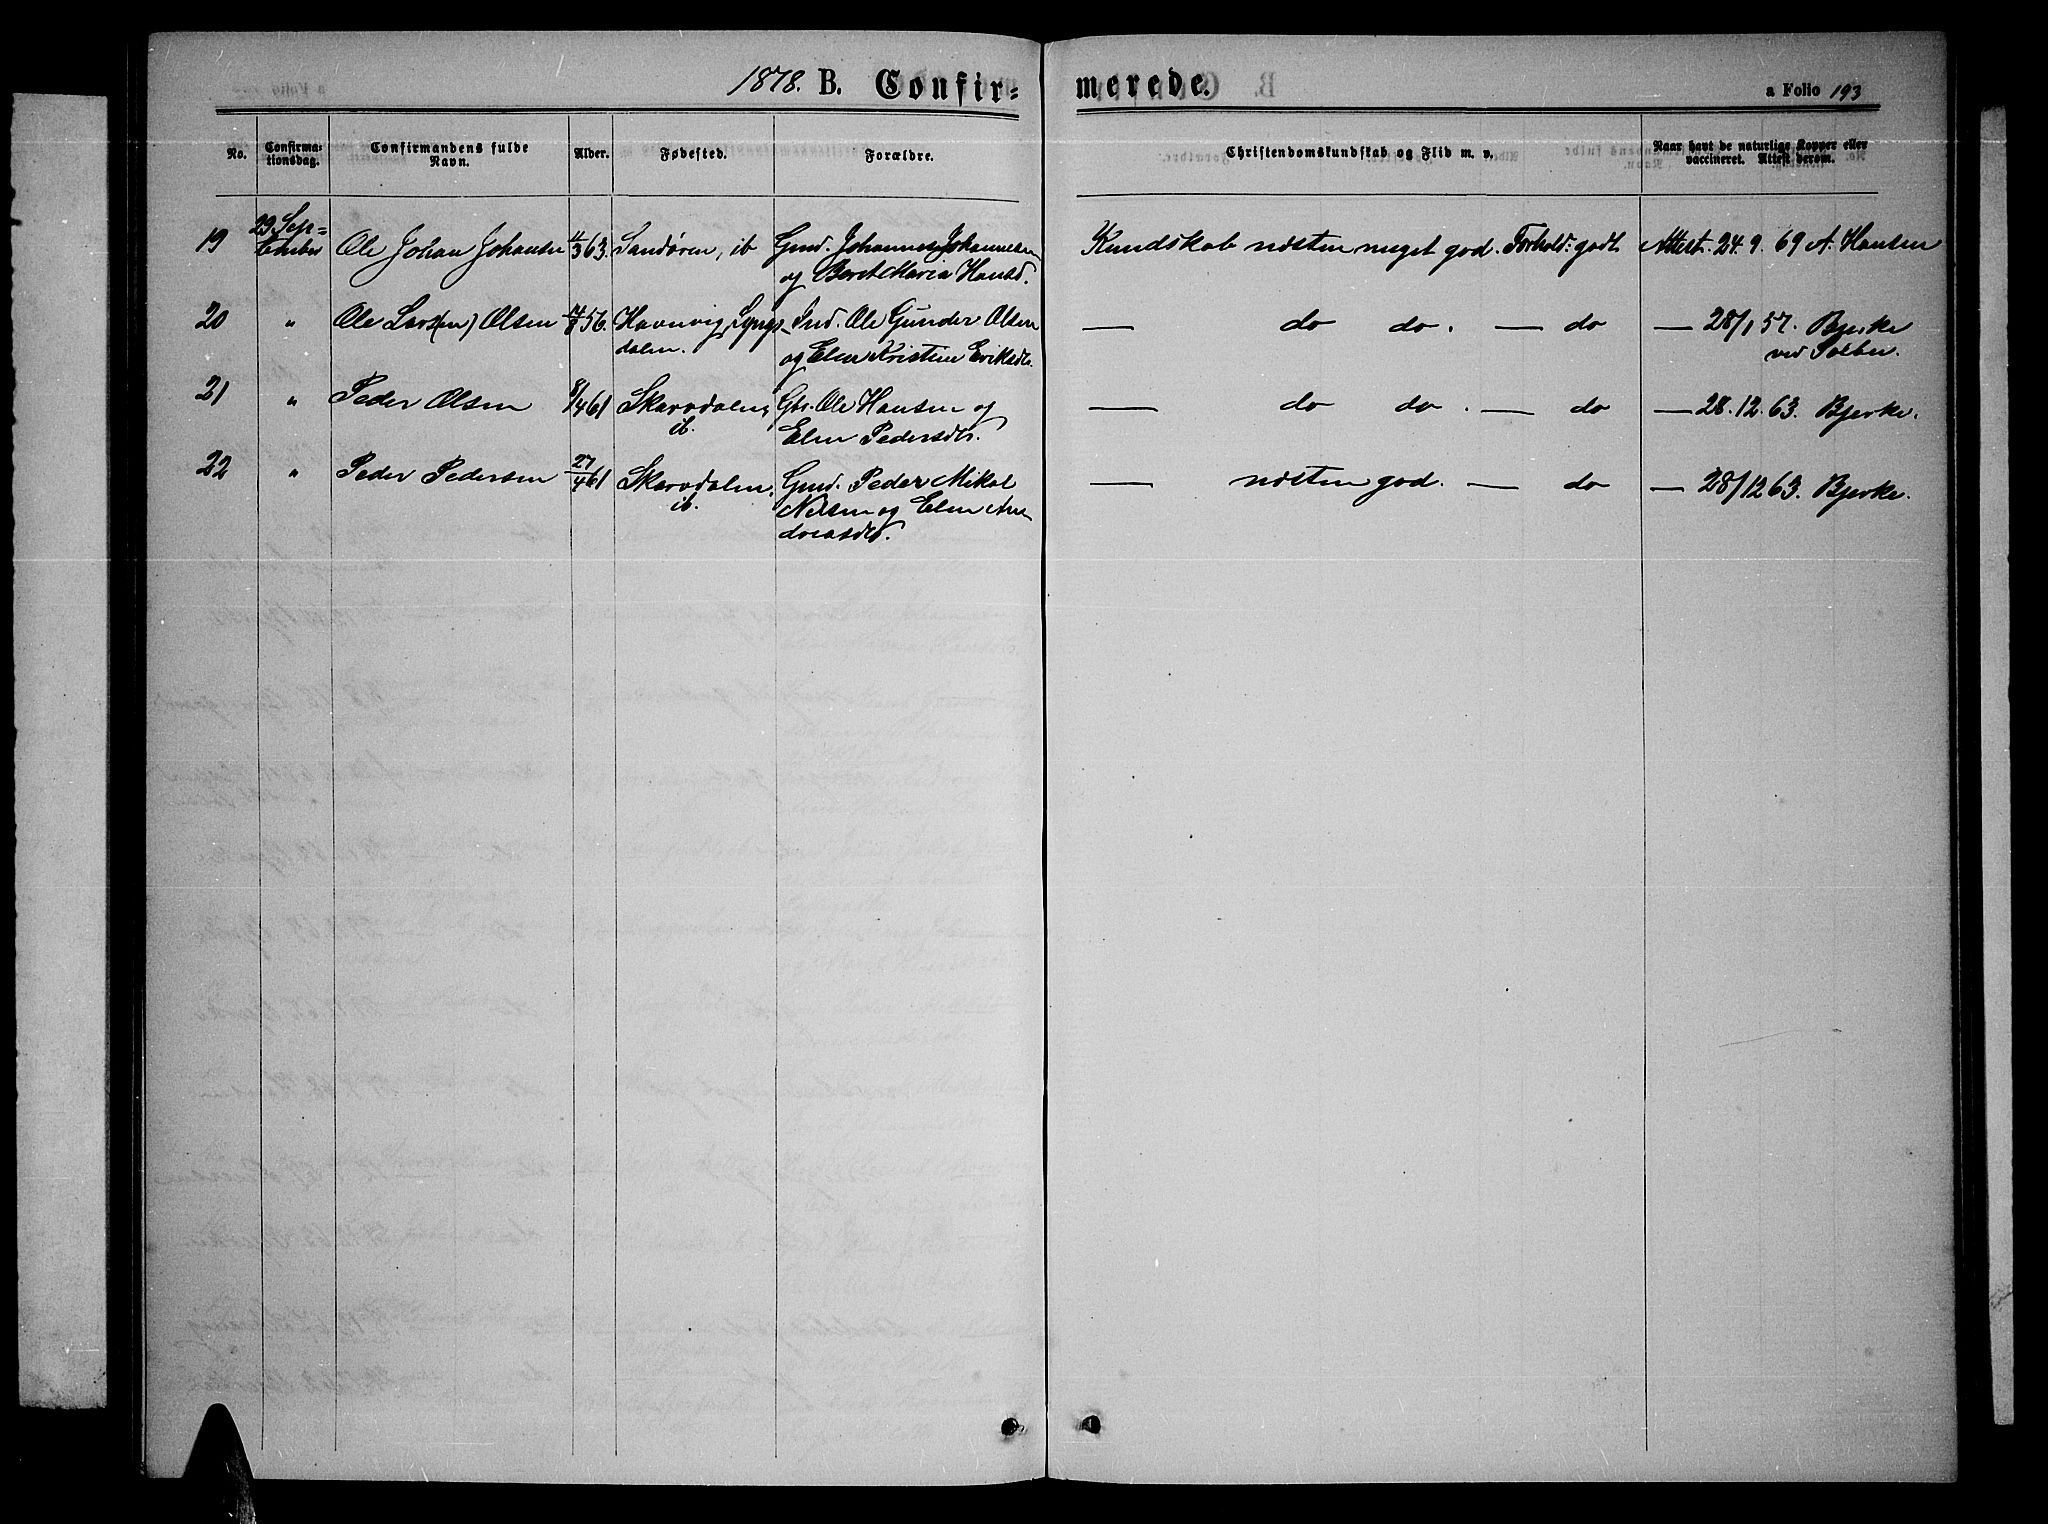 1878. B. Confir= merede. a Folio 193
No. Confirma- tionsdag. Confirmandens fulde Navn. Alder. Fødested. Forældre. Christendomskundskab og Flid m. v. Naar havt de naturlige Kopper eller vaccineret. Attest derom.
19 29 Sep= tember Ole Johan Johansen 11/3 63. Sandøren, ib Gmd. Johannes Johannesen Kundskab næsten meget god. Forhold: godt Attest. 24. 9. 69 A. Hansen
og Beret Maria Hansd.
20 " Ole Lars(en) Olsen 56. Havnvig, Lyngs- Ind. Ole Gunder Olsen — do do. — do — 28/1 57. Bjerke
dalen. og Elen Kristine Eriksdtr. ved
21 " Peder Olsen 8/4 61 Skarvdalen, Gbr. Ole Hansen og — do do. — do — 28. 12. 63. Bjerke.
ib. Elen Pedersdtr.
22 " Peder Pedersen 27/4 61 Skarvdalen, Gmd. Peder Mikal — næsten god. — do — 28/12 63. Bjerke.
ib. Nilsen og Elen An-
dreasdtr.